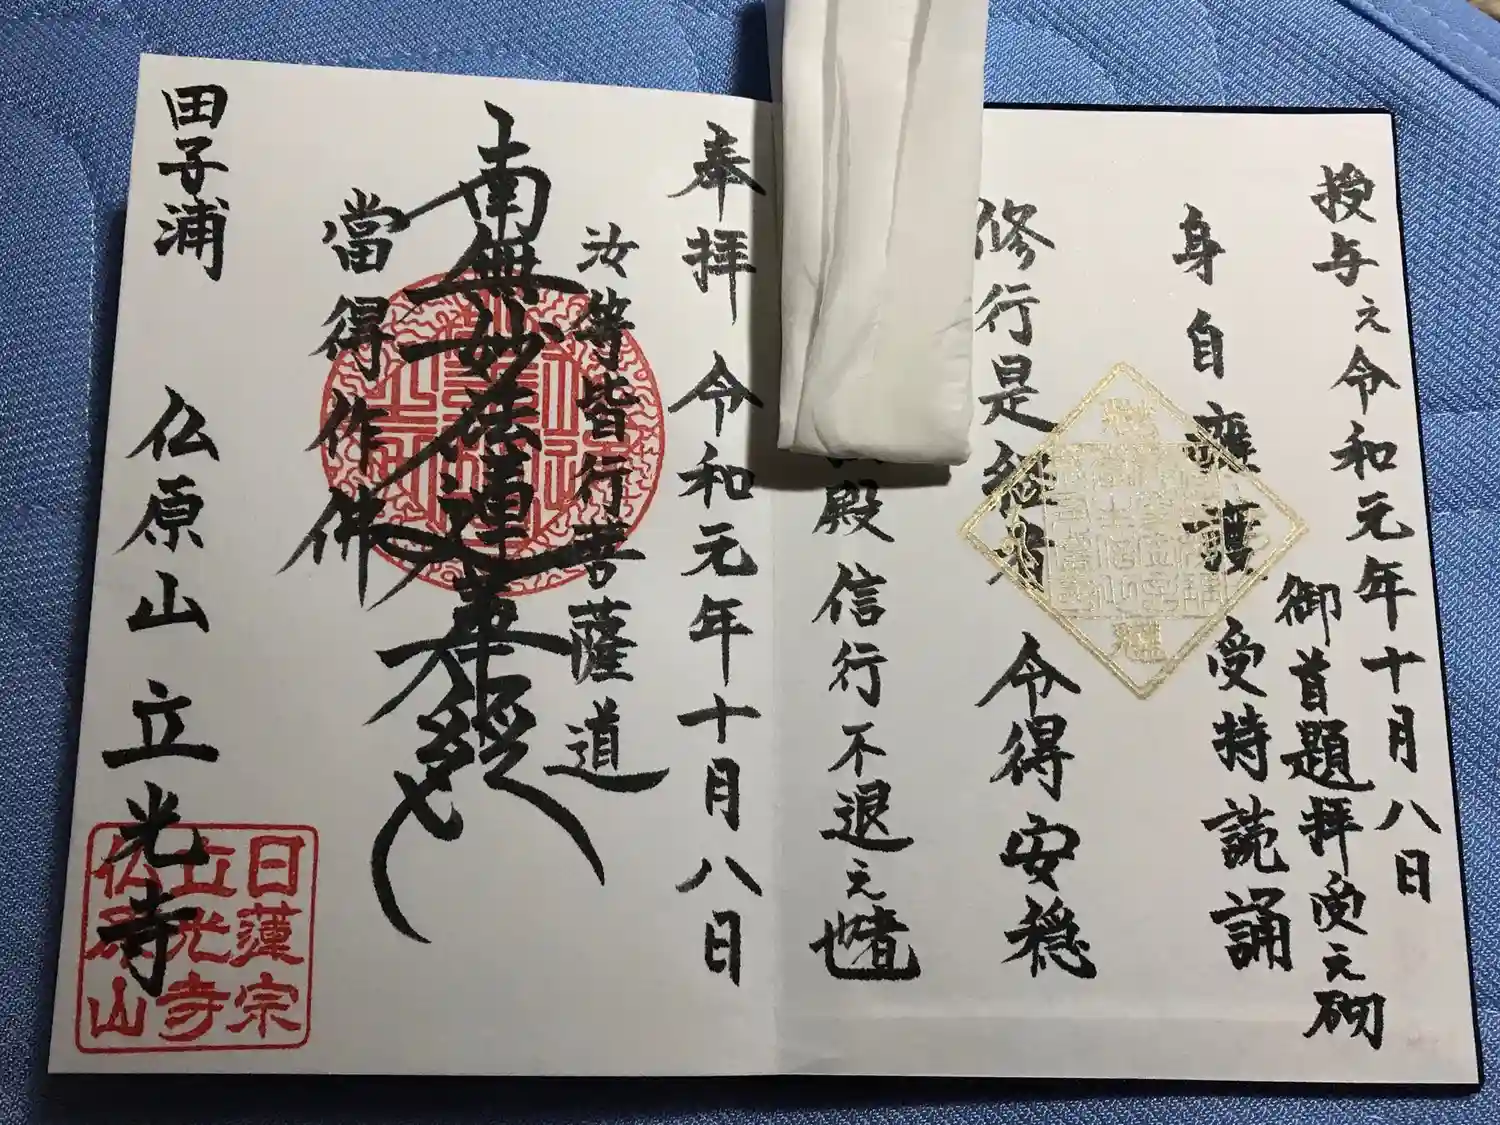 授与之 令和元年十月八日
御首題拝受之砌
身自擁護 受持読誦
修行是経者 令得安穏
殿 信行不退之者也
奉拝 令和元年十月八日
汝等皆行菩薩道
南無妙法蓮華経
當得作佛
田子浦 仏原山 立光寺
日蓮宗
立光寺
仏原山